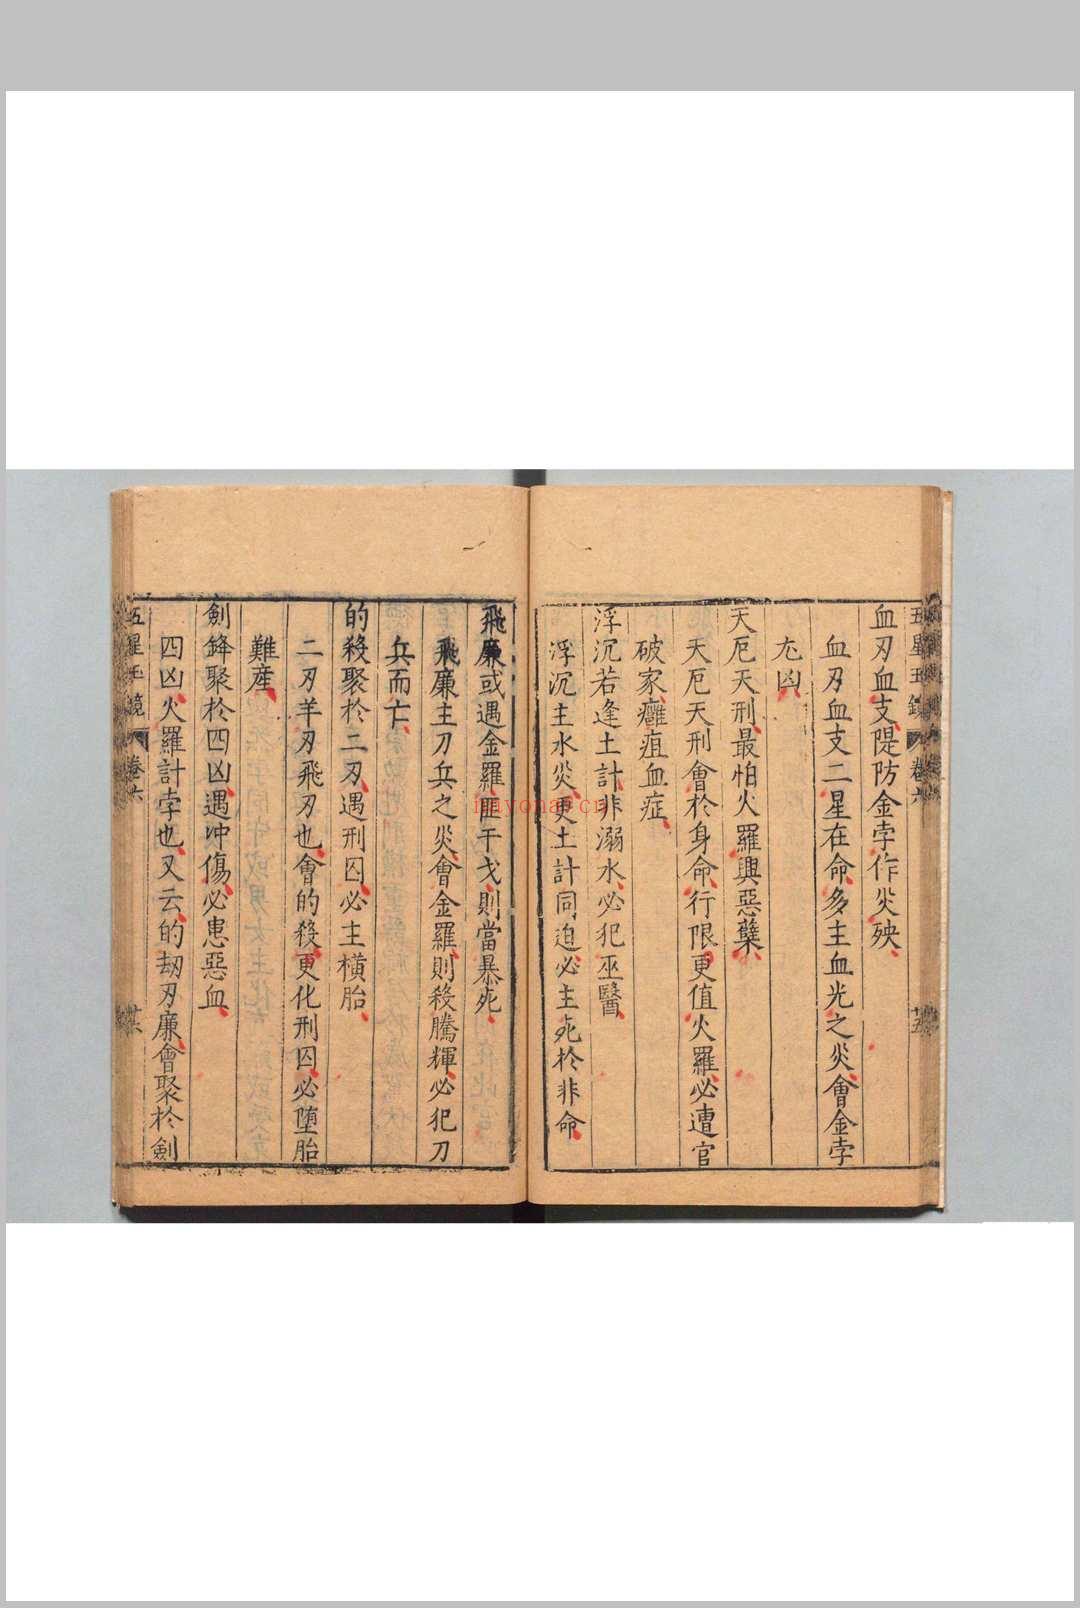 五星玉鏡 卷六 廿五
血刃血支隄防金孛作災殃
血刃血支二星在命多主血光之災會金孛
尤凶
天厄天刑最怕火羅興惡孽
天厄天刑會於身命行限更值火羅必遭官
破家癰疽血症
浮沉若逢土計非溺水必犯巫醫
浮沉主水災更土計同迫必主死於非命
飛廉或遇金羅匪干戈則當暴死
飛廉主刀兵之災會金羅則殺騰輝必犯刀
兵而亡
的殺聚於二刃遇刑囚必主橫胎
二刃羊刃飛刃也會的殺更化刑囚必墮胎
難產
劍鋒聚於四凶遇冲傷必患惡血
四凶火羅計孛也又云的刼刃廉會聚於劍
五星玉鏡 卷六 廿六
huyonar.cn